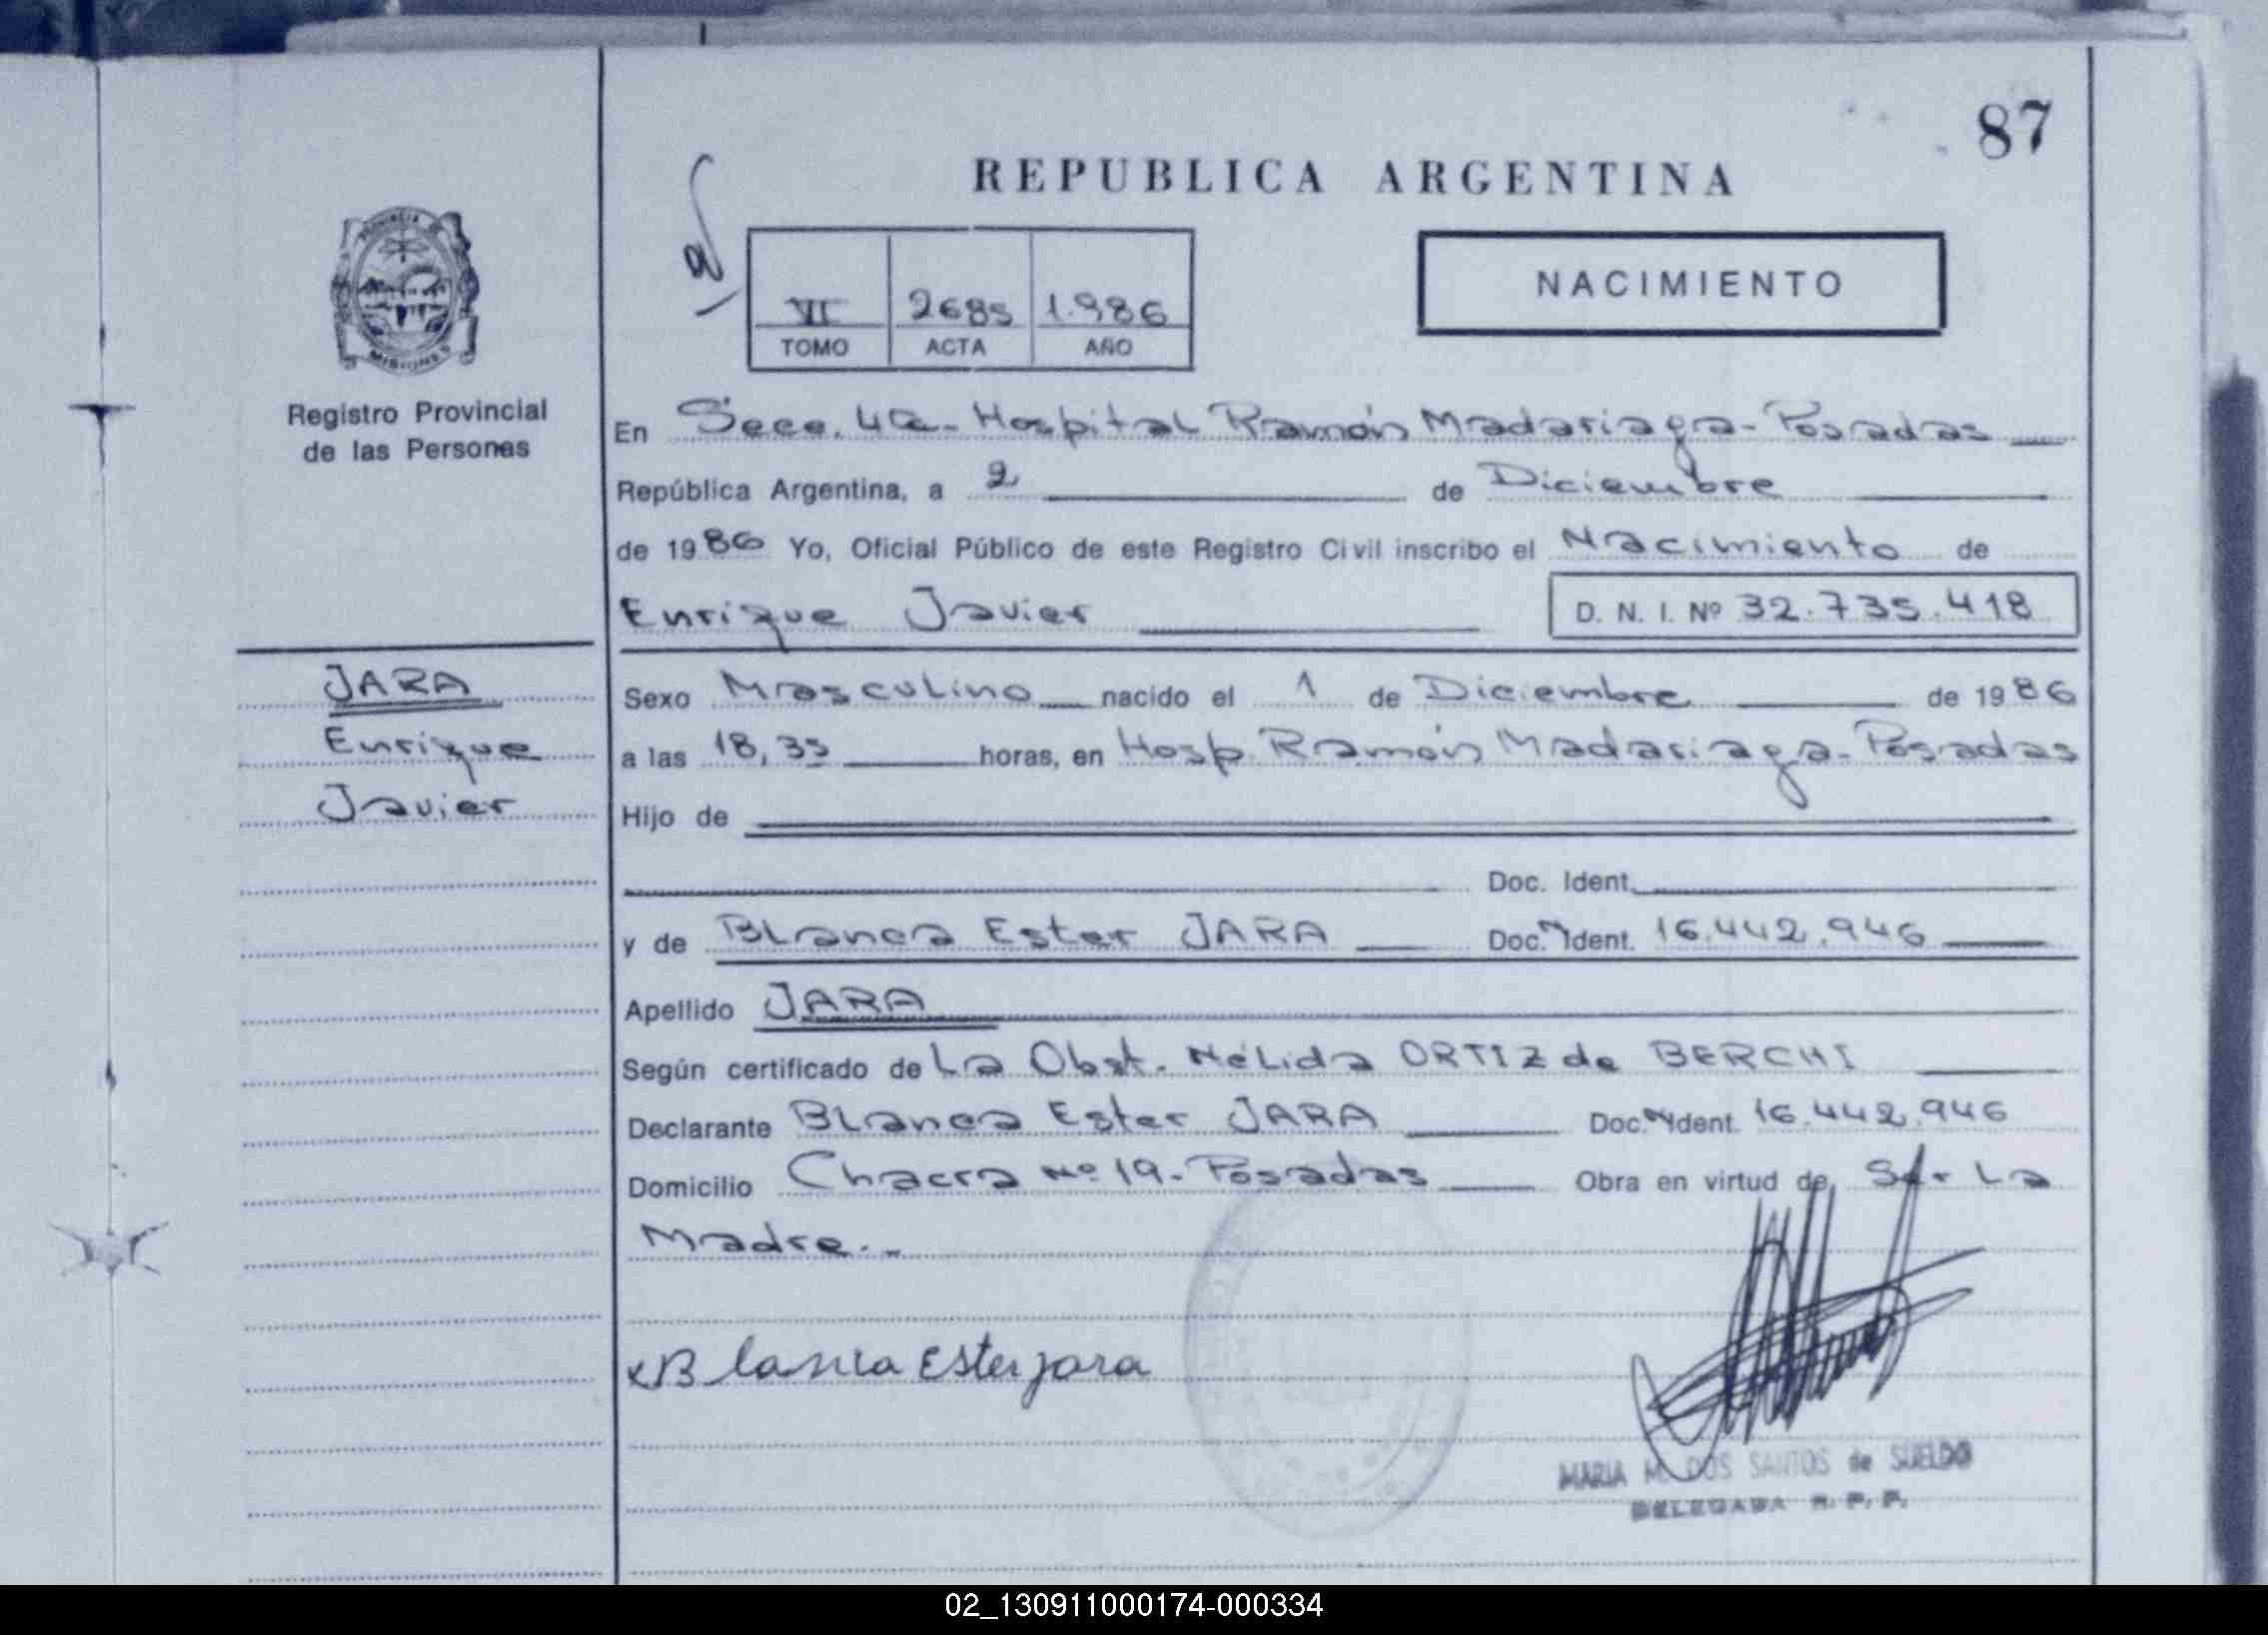 87
REPUBLICA ARGENTINA
VI 2685 1.986
TOMO ACTA AÑO
NACIMIENTO
PROVINCIA DE
MISIONES
Registro Provincial
de las Personas
En Secc. 4a - Hospital Ramón Madariaga - Posadas
República Argentina, a 2 de Diciembre
de 1986 Yo, Oficial Público de este Registro Civil inscribo el Nacimiento de
Enrique Javier D. N. I. Nº 32.735.418
JARA
Enrique
Javier
Sexo Masculino nacido el 1 de Diciembre de 1986
a las 18,35 horas, en Hosp. Ramón Madariaga - Posadas
Hijo de
Doc. Ident.
y de Blanca Ester JARA Doc. Ident. 16.442.946
Apellido JARA
Según certificado de La Obst. Nélida ORTIZ de BERCHI
Declarante Blanca Ester JARA Doc. Ident. 16.442.946
Domicilio Chacra Nº 19 - Posadas Obra en virtud de Ser La
Madre. -
x Blanca Ester jara
MARIA M. DOS SANTOS de SUELDO
DELEGADA R. P. P.
02_130911000174-000334